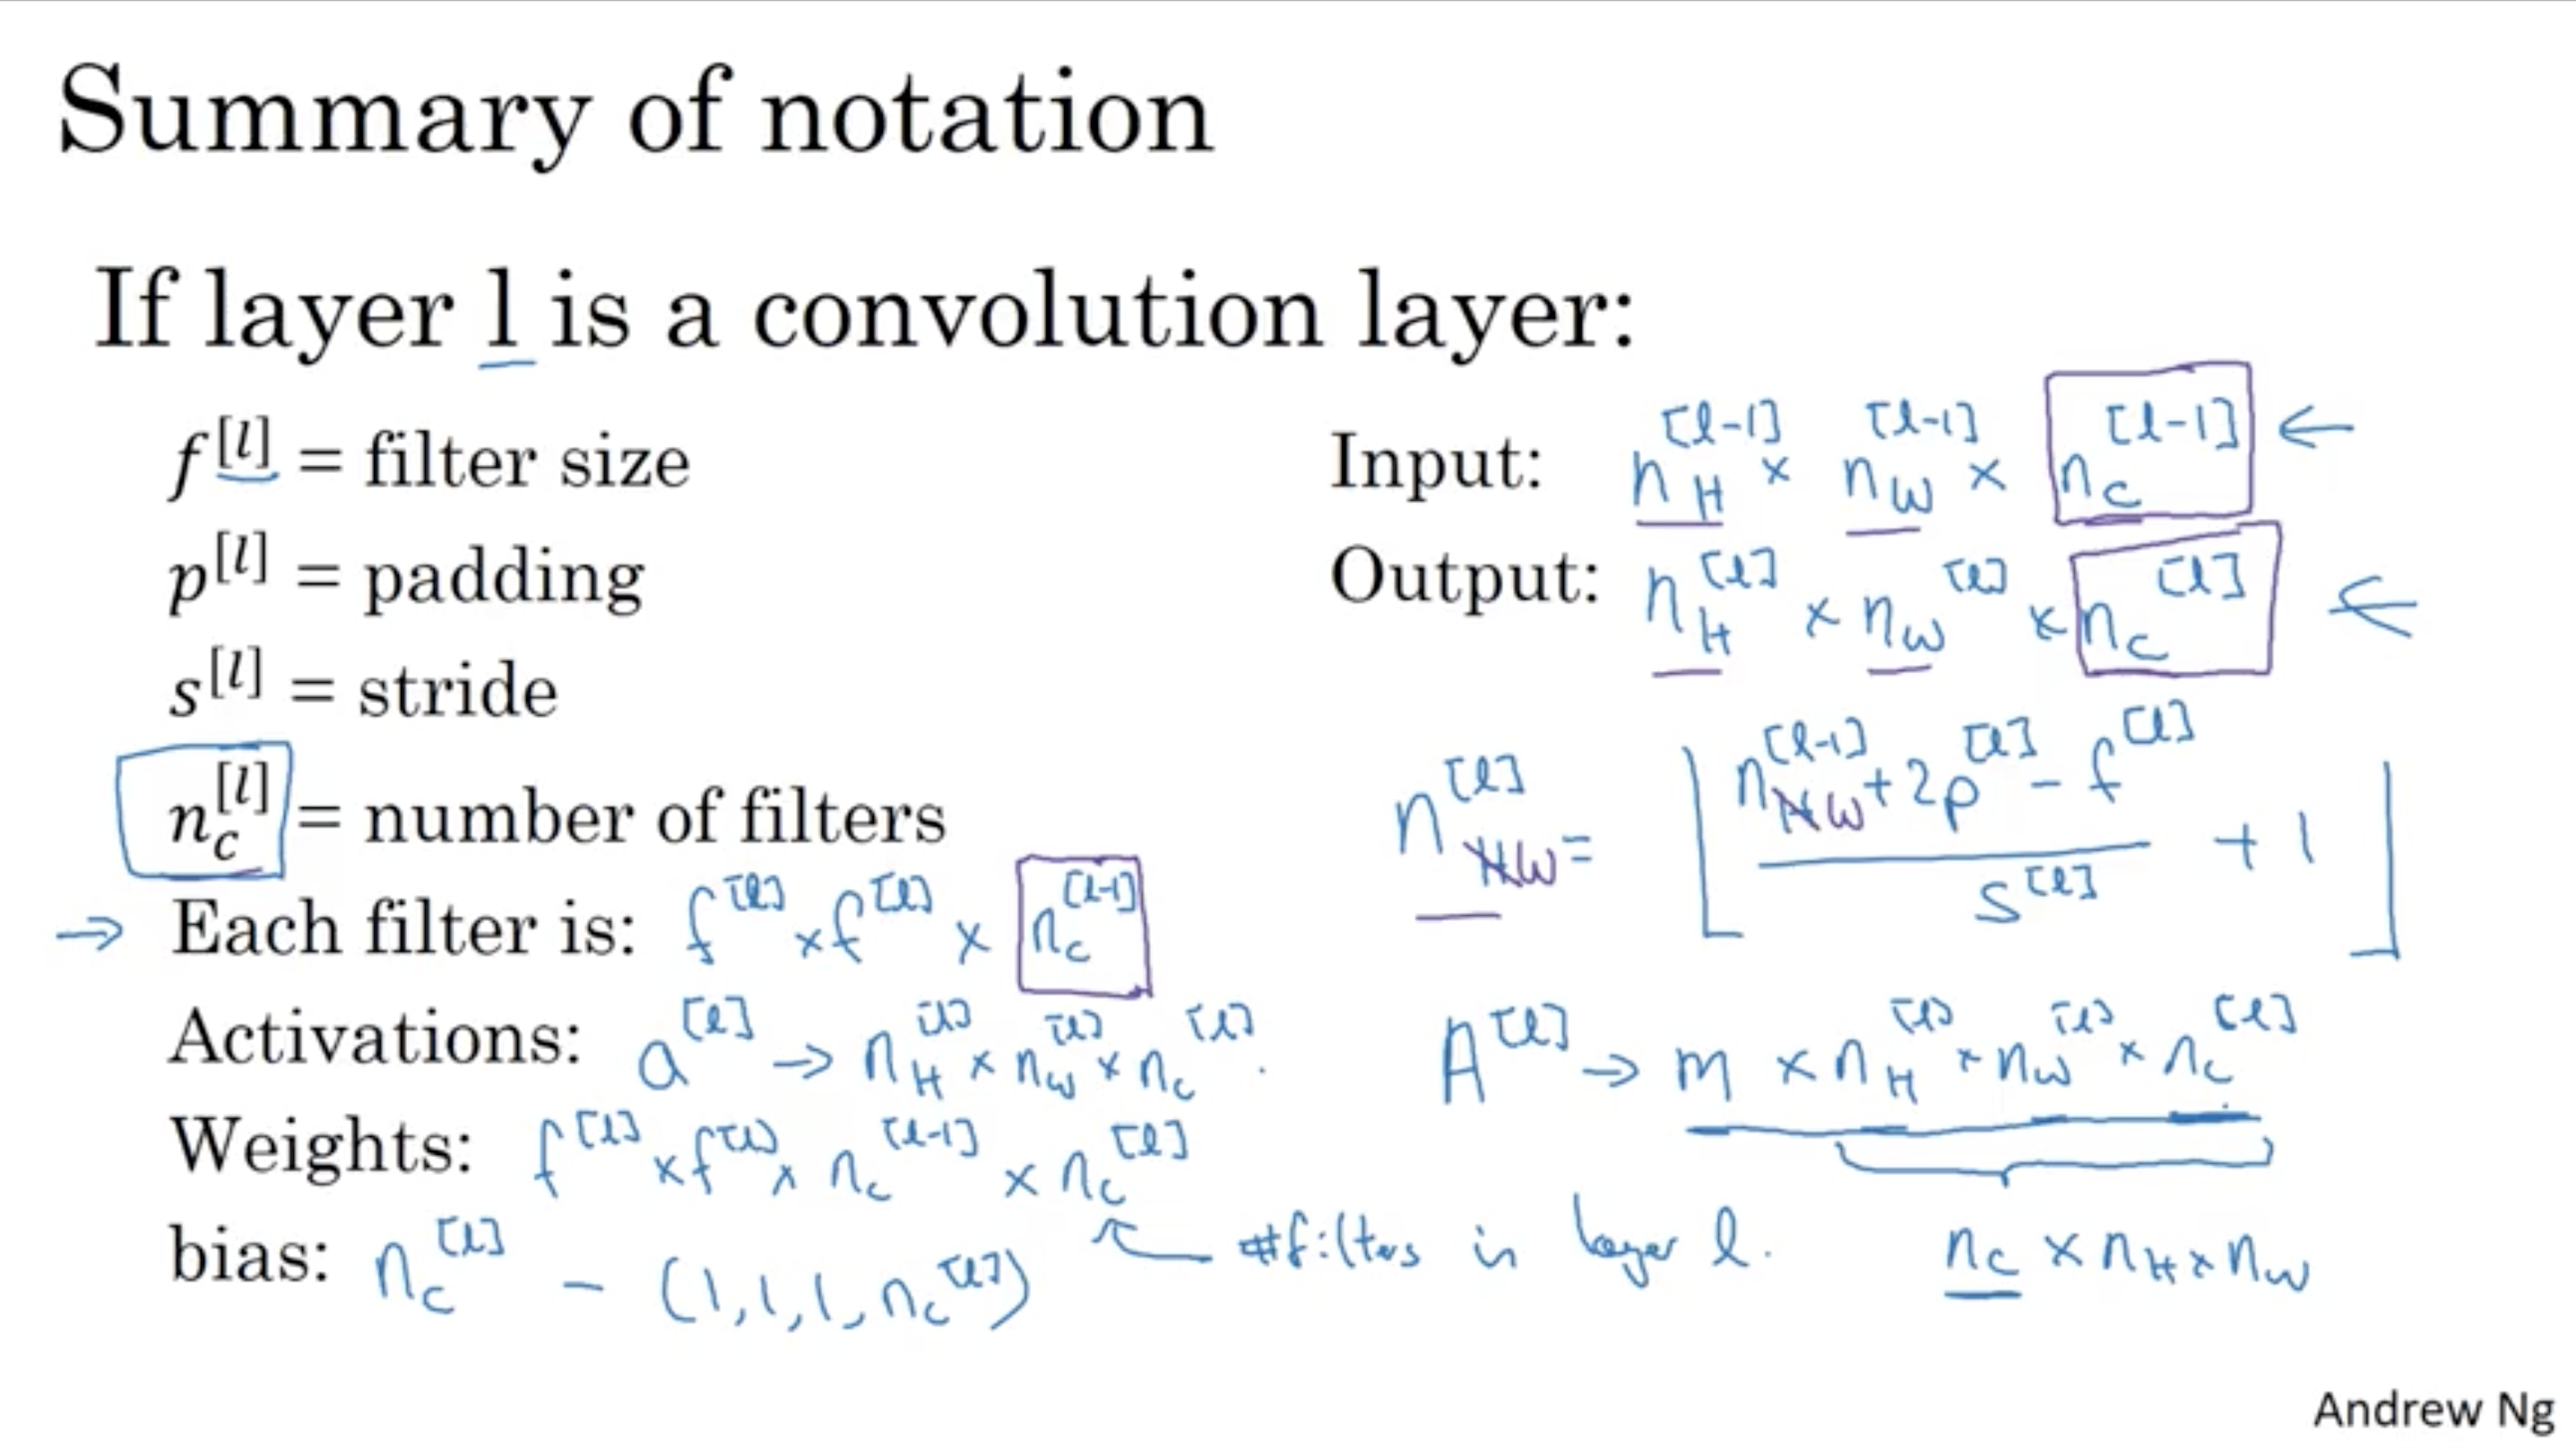 Summary of notation
If layer l is a convolution layer:
f^[l] = filter size
p^[l] = padding
s^[l] = stride
n_c^[l] = number of filters
→ Each filter is: f^[l] × f^[l] × n_c^[l-1]
Activations: a^[l] → n_H^[l] × n_W^[l] × n_c^[l].
Weights: f^[l] × f^[l] × n_c^[l-1] × n_c^[l]
bias: n_c^[l] - (1,1,1,n_c^[l])
#filters in layer l.
Input: n_H^[l-1] × n_W^[l-1] × n_c^[l-1] ←
Output: n_H^[l] × n_W^[l] × n_c^[l] ←
n_W^[l] = ⌊ (n_W^[l-1] + 2p^[l] - f^[l]) / s^[l] + 1 ⌋
A^[l] → m × n_H^[l] × n_W^[l] × n_c^[l]
n_c × n_H × n_W
Andrew Ng